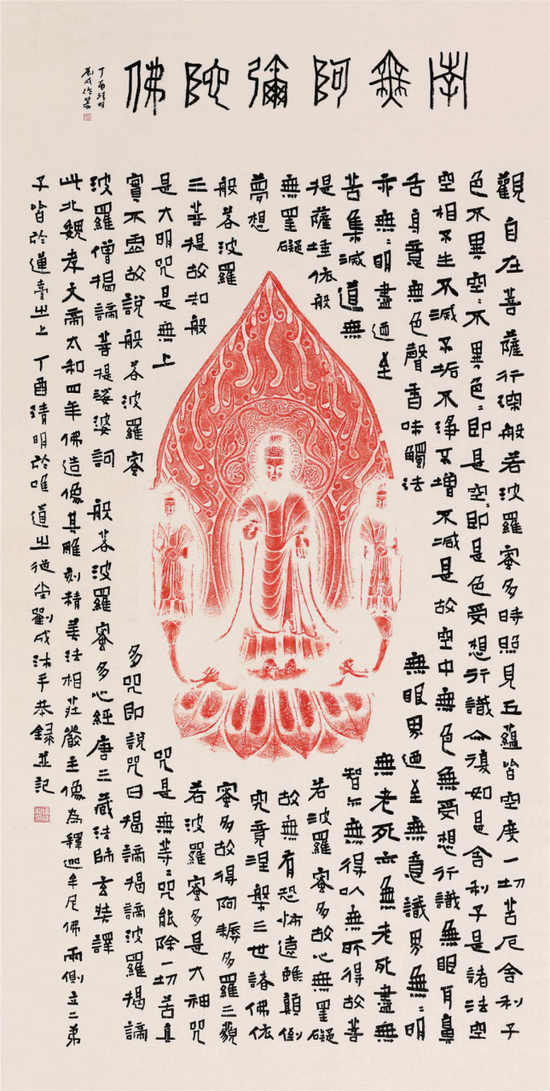 南無阿彌陀佛
丁酉清明
觀自在菩薩行深般若波羅蜜多時照見五蘊皆空度一切苦厄舍利子
色不異空〻不異色〻即是空〻即是色受想行識亦復如是舍利子是諸法空
空相不生不滅不垢不淨不增不減是故空中無色無受想行識無眼耳鼻
舌身意無色聲香味觸法 無眼界迺至無意識界無〻明
亦無〻明盡迺至 無老死亦無老死盡無
苦集滅道無 智亦無得以無所得故菩
提薩埵依般 若波羅蜜多故心無罣礙
無罣礙 故無有恐怖遠離顛倒
夢想 究竟涅槃三世諸佛依
般若波羅 蜜多故得阿耨多羅三藐
三菩提故知般 若波羅蜜多是大神咒
是大明咒是無上 咒是無等〻咒能除一切苦真
實不虛故說般若波羅蜜 多咒即說咒曰揭諦揭諦波羅揭諦
波羅僧揭諦菩提娑婆訶 般若波羅蜜多心經唐三藏法師玄奘譯
此北魏孝文帝太和四年佛造像其雕刻精美法相莊嚴主像為釋迦牟尼佛兩側立二弟
子皆於蓮臺之上 丁酉清明於唯道之從舍劉成沐手恭錄並記